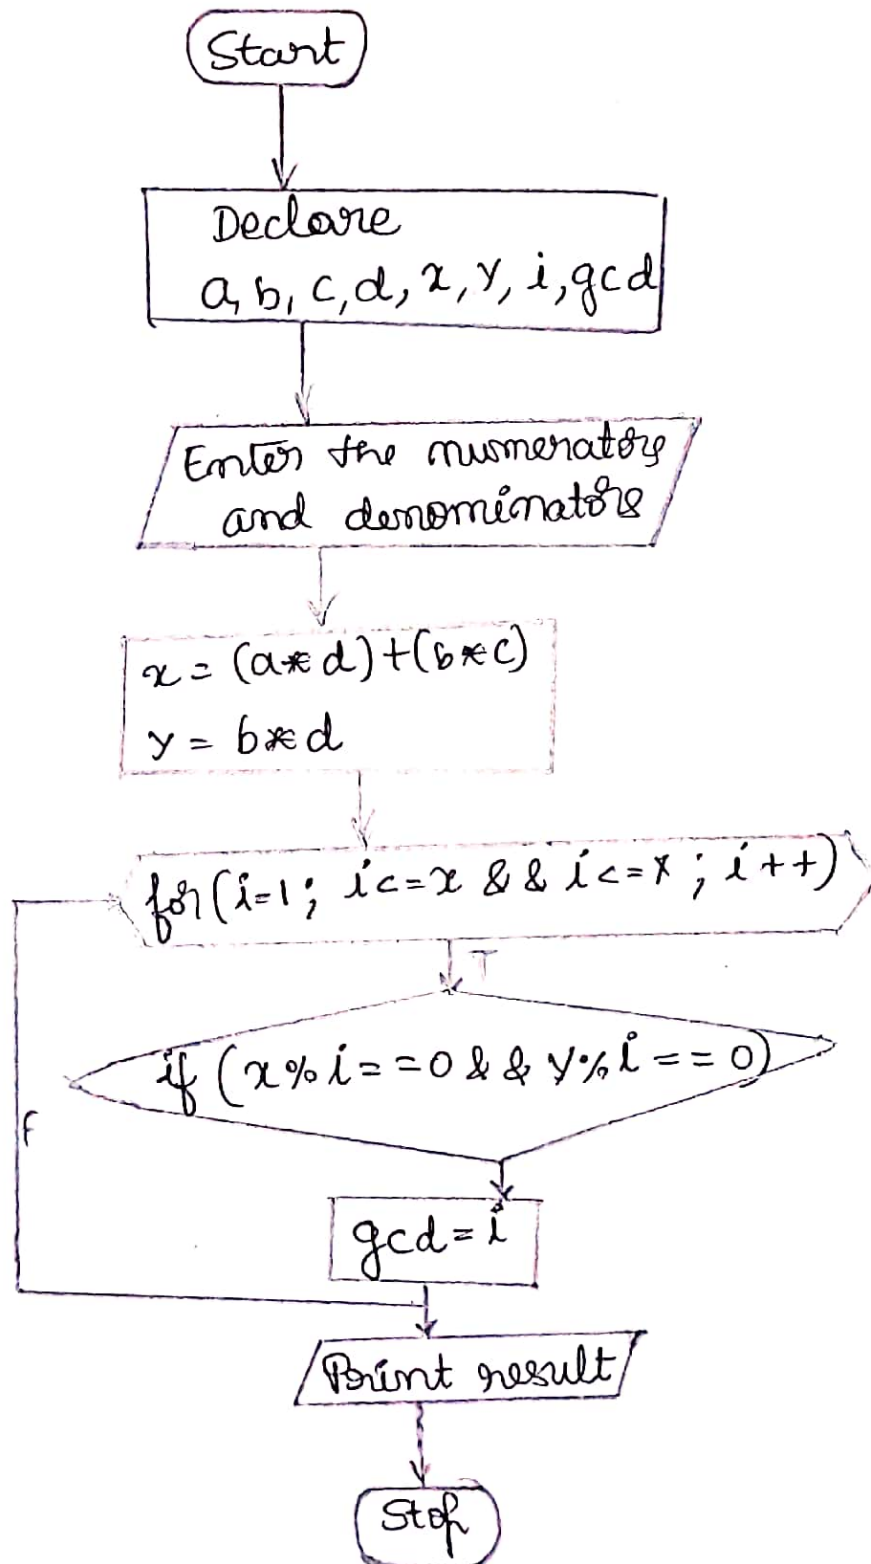 Start
Declare
a, b, c, d, x, y, i, gcd
Enter the numerators
and denominators
x = (a*d)+(b*c)
y = b*d
for(i=1; i<=x && i<=y; i++)
T
if (x%i==0 && y%i==0)
F
gcd=i
Print result
Stop